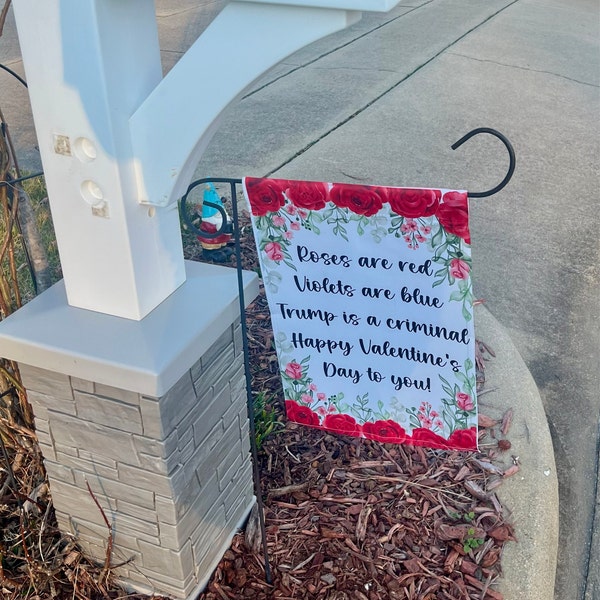 Roses are red
Violets are blue
Trump is a criminal
Happy Valentine's
Day to you!